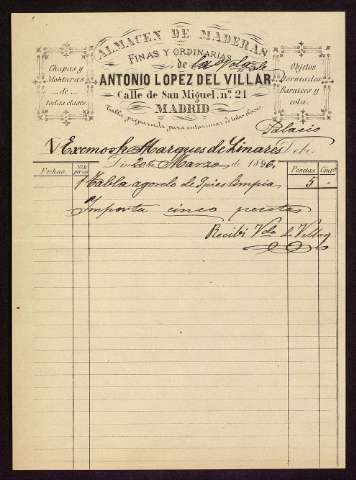 ALMACEN DE MADERAS
FINAS Y ORDINARIAS
de la
Chapas y
Molduras
de
todas clases
Objetos
torneados
Barnices y
cola.
ANTONIO LOPEZ DEL VILLAR
Calle de San Miguel, nº. 21
MADRID
Tabla preparada para entarimar de todas clases
Palacio
Excmo Sr Marques de Linares Debe
20 de Marzo de 1896
Fechas. Pesetas Cents
1 tabla de 7 pies limpia 5 -
Importa cinco pesetas
Recibí Vda de Villar